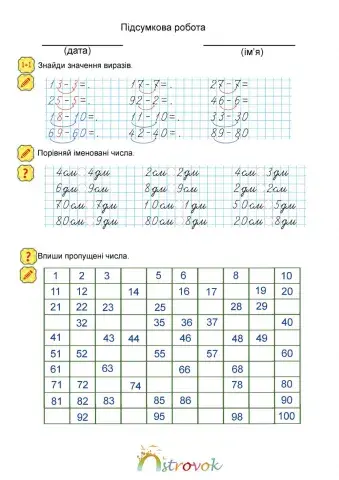 Підсумкова робота
(дата) (ім'я)
1+1 Знайди значення виразів.
13-3=. 17-7=. 27-7=.
25-5=. 92-2=. 46-6=
18-10=. 11-10=. 33-30
69-60=. 42-40=. 89-80
Порівняй іменовані числа.
? 4см 4дм 2см 2дм 4см 3дм
6дм 9см 8дм 9см 2дм 2см
70см 7дм 10см 1дм 50см 5дм
80см 9дм 80см 8дм 20см 8дм
? Впиши пропущені числа.
1 2 3 5 6 8 10
11 12 14 16 17 19 20
21 22 23 25 28 29
32 35 36 37 40
41 43 44 46 48 49
51 52 55 57 60
61 63 66 68
71 72 74 78 80
81 82 83 85 86 90
92 95 98 100
strovok